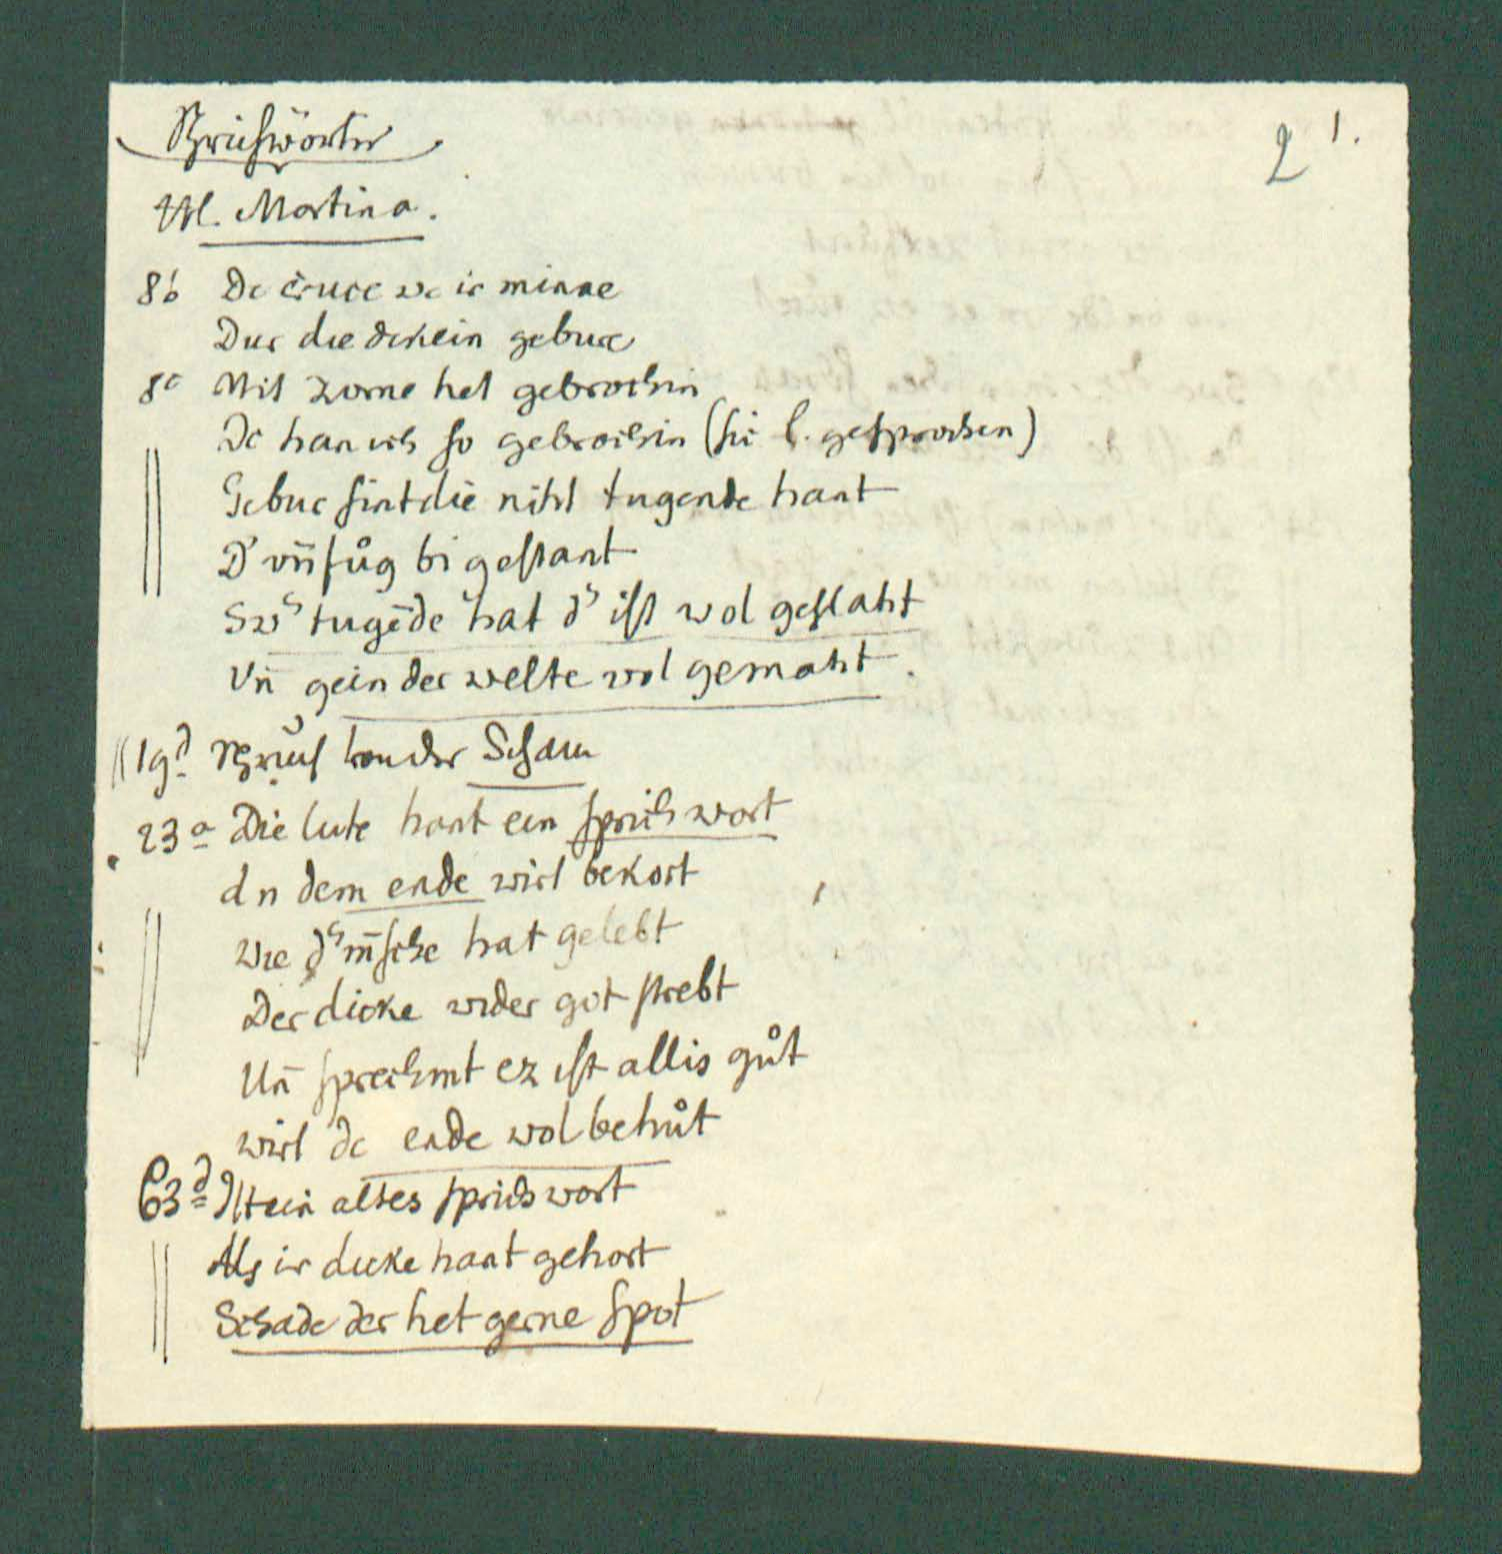 Sprichwörter
2 1.
Hl. Martina.
8b Dc truce vc ir minne
Dur die dekein gebure
8c Mit zorne het gebrochin
Dc han ich so gebrochin (sic l. gesprochen)
Gebur sint die niht tugende hant
D' vn̄fůg bi gestant
Sw' tugēde hat d' ist wol geslaht
Vn̄ gein der welte wol gemaht.
19d Spruch von der Scham
23a Die lute hant ein sprichwort
An dem ende wirt bekort
wie d' m̄sche hat gelebt
Der dicke wider got strebt
Un̄ sprechint ez ist allis gůt
wirt dc ende wol behůt
63d Ist ein altes sprichwort
Als ir dicke hant gehort
Schade der het gerne spot